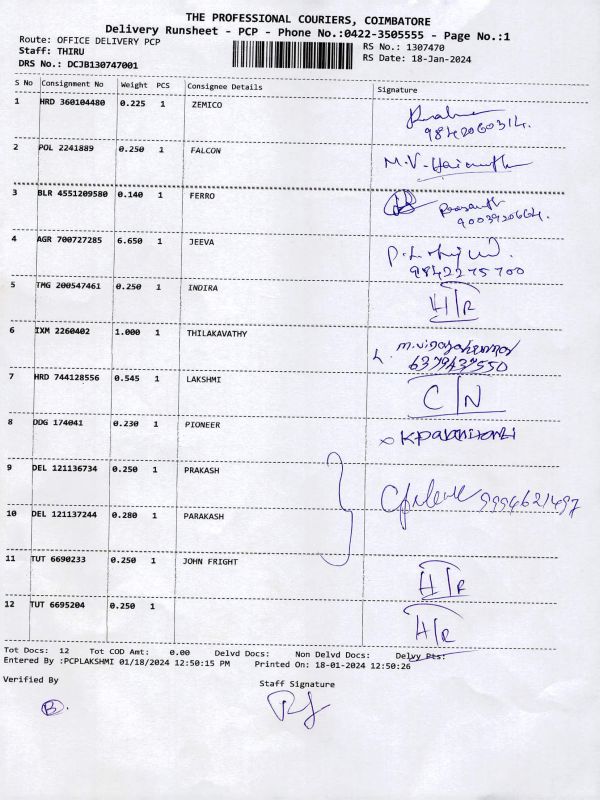 THE PROFESSIONAL COURIERS, COIMBATORE
Delivery Runsheet - PCP - Phone No.:0422-3505555 - Page No.:1
Route: OFFICE DELIVERY PCP
RS No.: 1307470
Staff: THIRU
RS Date: 18-Jan-2024
DRS No.: DCJB130747001
S No Consignment No Weight PCS Consignee Details Signature
1 HRD 360104480 0.225 1 ZEMICO
9842060314.
2 POL 2241889 0.250 1 FALCON M.V.
3 BLR 4551209580 0.140 1 FERRO
9003920664.
4 AGR 700727285 6.650 1 JEEVA
9842275700
5 TMG 200547461 0.250 1 INDIRA H/R
6 IXM 2260402 1.000 1 THILAKAVATHY
6379437550
7 HRD 744128556 0.545 1 LAKSHMI C/N
8 DDG 174041 0.230 1 PIONEER
9 DEL 121136734 0.250 1 PRAKASH
9994621497
10 DEL 121137244 0.280 1 PARAKASH
11 TUT 6690233 0.250 1 JOHN FRIGHT H/R
12 TUT 6695204 0.250 1 H/R
Tot Docs: 12 Tot COD Amt: 0.00 Delvd Docs: Non Delvd Docs: Delvy Pts:
Entered By :PCPLAKSHMI 01/18/2024 12:50:15 PM Printed On: 18-01-2024 12:50:26
Verified By Staff Signature
B.